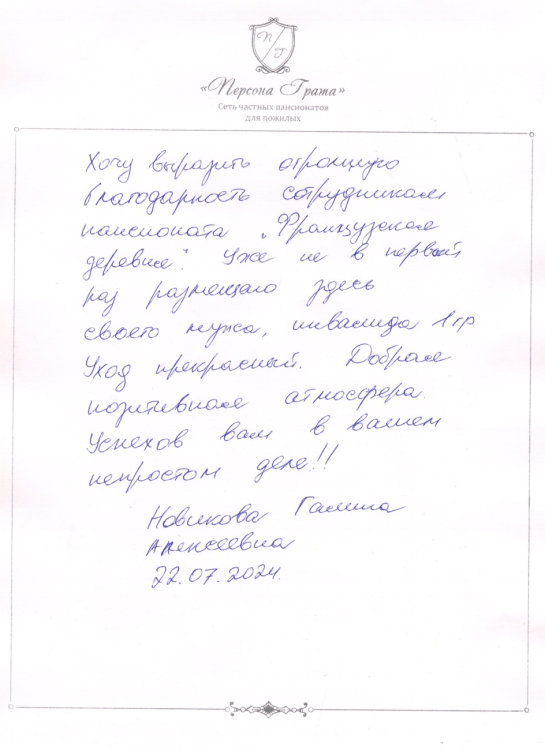 П Г
«Персона Грата»
Сеть частных пансионатов
для пожилых
Хочу выразить огромную
благодарность сотрудникам
пансионата „Французская
деревня". Уже не в первый
раз размещаю здесь
своего мужа, инвалида 1 гр
Уход прекрасный. Добрая
позитивная атмосфера.
Успехов вам в вашем
непростом деле!!
Новикова Галина
Алексеевна
22.07.2024.